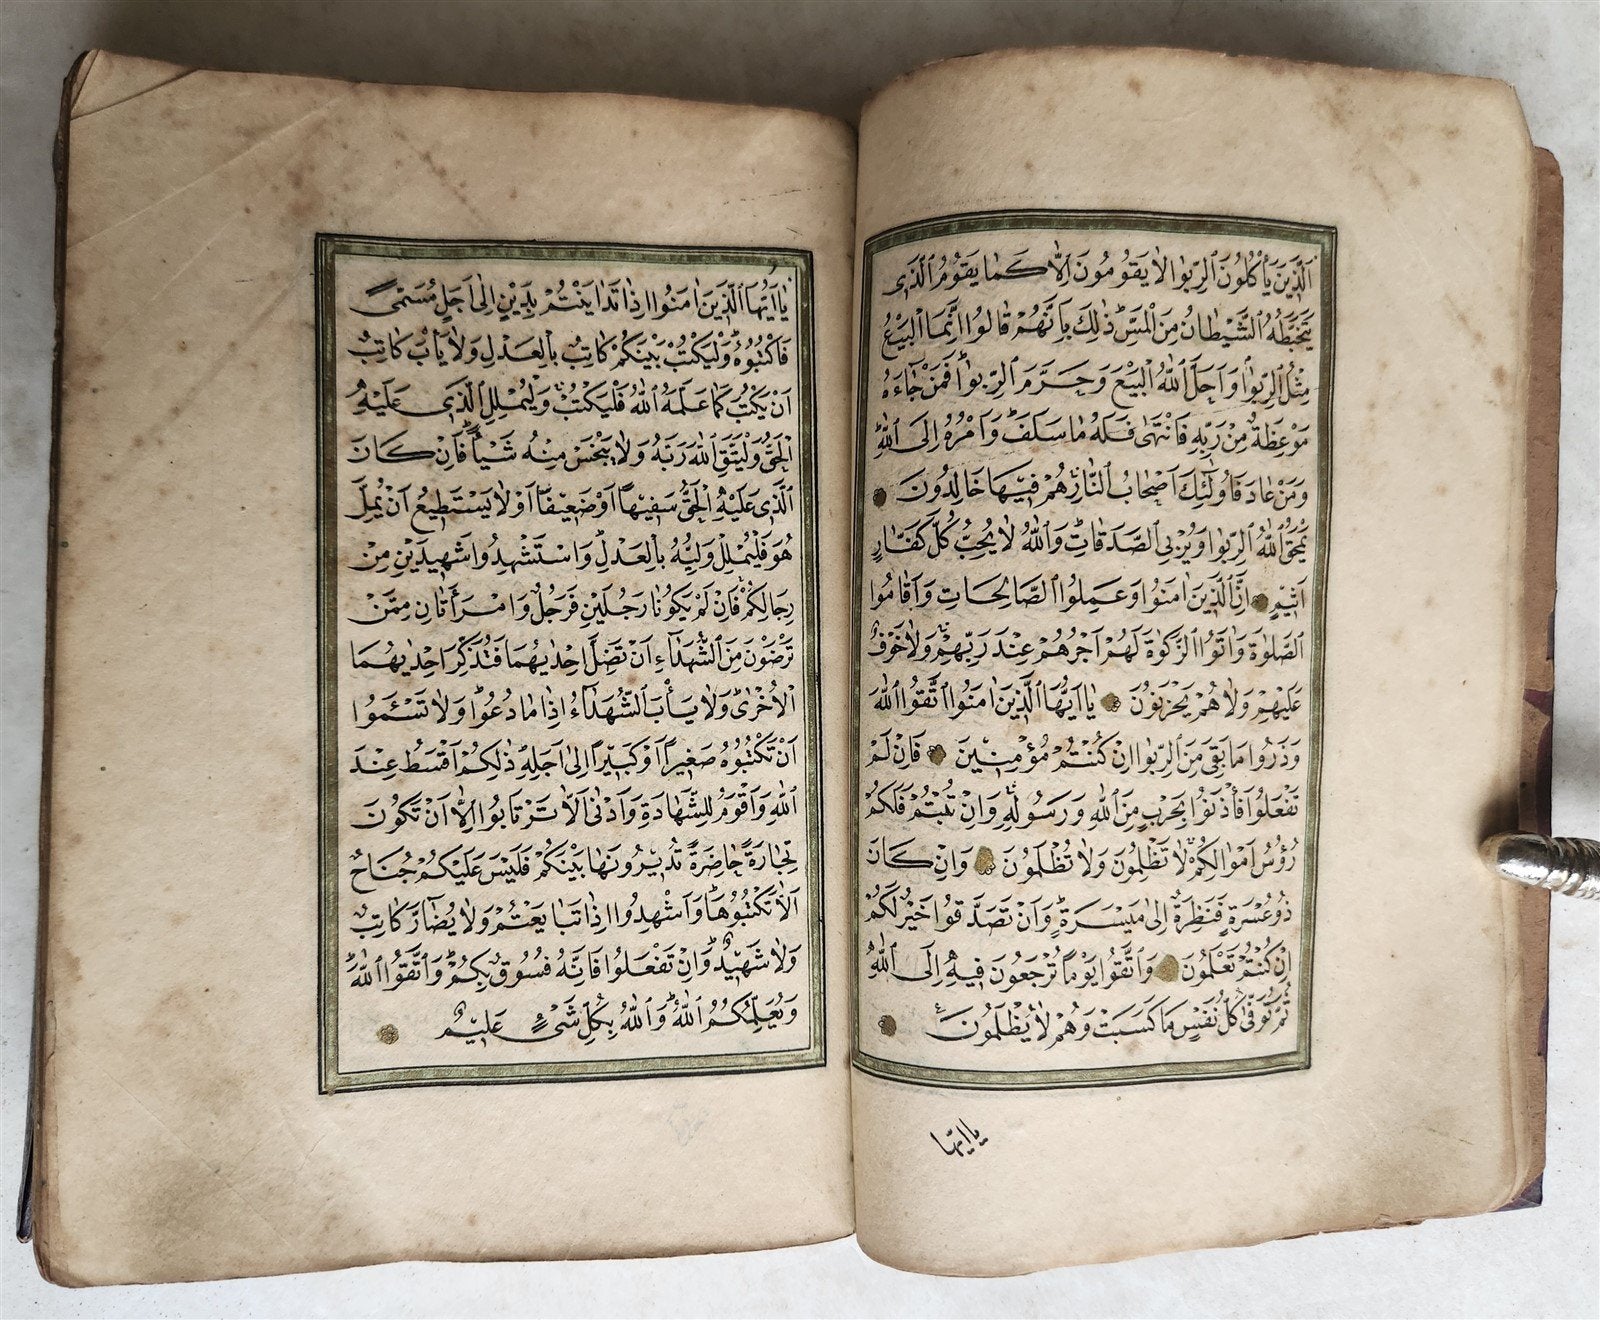 اَلَّذِينَ يَأْكُلُونَ الرِّبٰوا لَا يَقُومُونَ اِلَّا كَمَا يَقُومُ الَّذِى
يَتَخَبَّطُهُ الشَّيْطَانُ مِنَ الْمَسِّ ذٰلِكَ بِاَنَّهُمْ قَالُوا اِنَّمَا الْبَيْعُ
مِثْلُ الرِّبٰوا وَاَحَلَّ اللّٰهُ الْبَيْعَ وَحَرَّمَ الرِّبٰوا فَمَنْ جَاءَهُ
مَوْعِظَةٌ مِنْ رَبِّهِ فَانْتَهٰى فَلَهُ مَا سَلَفَ وَاَمْرُهُ اِلَى اللّٰهِ
وَمَنْ عَادَ فَاُولٰئِكَ اَصْحَابُ النَّارِ هُمْ فِيهَا خَالِدُونَ
يَمْحَقُ اللّٰهُ الرِّبٰوا وَيُرْبِى الصَّدَقَاتِ وَاللّٰهُ لَا يُحِبُّ كُلَّ كَفَّارٍ
اَثِيمٍ اِنَّ الَّذِينَ اٰمَنُوا وَعَمِلُوا الصَّالِحَاتِ وَاَقَامُوا
الصَّلٰوةَ وَاٰتَوُا الزَّكٰوةَ لَهُمْ اَجْرُهُمْ عِنْدَ رَبِّهِمْ وَلَا خَوْفٌ
عَلَيْهِمْ وَلَا هُمْ يَحْزَنُونَ يَا اَيُّهَا الَّذِينَ اٰمَنُوا اتَّقُوا اللّٰهَ
وَذَرُوا مَا بَقِىَ مِنَ الرِّبٰوا اِنْ كُنْتُمْ مُؤْمِنِينَ فَاِنْ لَمْ
تَفْعَلُوا فَأْذَنُوا بِحَرْبٍ مِنَ اللّٰهِ وَرَسُولِهِ وَاِنْ تُبْتُمْ فَلَكُمْ
رُؤُسُ اَمْوَالِكُمْ لَا تَظْلِمُونَ وَلَا تُظْلَمُونَ وَاِنْ كَانَ
ذُو عُسْرَةٍ فَنَظِرَةٌ اِلٰى مَيْسَرَةٍ وَاَنْ تَصَدَّقُوا خَيْرٌ لَكُمْ
اِنْ كُنْتُمْ تَعْلَمُونَ وَاتَّقُوا يَوْمًا تُرْجَعُونَ فِيهِ اِلَى اللّٰهِ
ثُمَّ تُوَفّٰى كُلُّ نَفْسٍ مَا كَسَبَتْ وَهُمْ لَا يُظْلَمُونَ
يا ايها
يَا اَيُّهَا الَّذِينَ اٰمَنُوا اِذَا تَدَايَنْتُمْ بِدَيْنٍ اِلٰى اَجَلٍ مُسَمًّى
فَاكْتُبُوهُ وَلْيَكْتُبْ بَيْنَكُمْ كَاتِبٌ بِالْعَدْلِ وَلَا يَأْبَ كَاتِبٌ
اَنْ يَكْتُبَ كَمَا عَلَّمَهُ اللّٰهُ فَلْيَكْتُبْ وَلْيُمْلِلِ الَّذِى عَلَيْهِ
الْحَقُّ وَلْيَتَّقِ اللّٰهَ رَبَّهُ وَلَا يَبْخَسْ مِنْهُ شَيْئًا فَاِنْ كَانَ
الَّذِى عَلَيْهِ الْحَقُّ سَفِيهًا اَوْ ضَعِيفًا اَوْ لَا يَسْتَطِيعُ اَنْ يُمِلَّ
هُوَ فَلْيُمْلِلْ وَلِيُّهُ بِالْعَدْلِ وَاسْتَشْهِدُوا شَهِيدَيْنِ مِنْ
رِجَالِكُمْ فَاِنْ لَمْ يَكُونَا رَجُلَيْنِ فَرَجُلٌ وَامْرَأَتَانِ مِمَّنْ
تَرْضَوْنَ مِنَ الشُّهَدَاءِ اَنْ تَضِلَّ اِحْدٰيهُمَا فَتُذَكِّرَ اِحْدٰيهُمَا
الْاُخْرٰى وَلَا يَأْبَ الشُّهَدَاءُ اِذَا مَا دُعُوا وَلَا تَسْئَمُوا
اَنْ تَكْتُبُوهُ صَغِيرًا اَوْ كَبِيرًا اِلٰى اَجَلِهِ ذٰلِكُمْ اَقْسَطُ عِنْدَ
اللّٰهِ وَاَقْوَمُ لِلشَّهَادَةِ وَاَدْنٰى اَلَّا تَرْتَابُوا اِلَّا اَنْ تَكُونَ
تِجَارَةً حَاضِرَةً تُدِيرُونَهَا بَيْنَكُمْ فَلَيْسَ عَلَيْكُمْ جُنَاحٌ
اَلَّا تَكْتُبُوهَا وَاَشْهِدُوا اِذَا تَبَايَعْتُمْ وَلَا يُضَارَّ كَاتِبٌ
وَلَا شَهِيدٌ وَاِنْ تَفْعَلُوا فَاِنَّهُ فُسُوقٌ بِكُمْ وَاتَّقُوا اللّٰهَ
وَيُعَلِّمُكُمُ اللّٰهُ وَاللّٰهُ بِكُلِّ شَىْءٍ عَلِيمٌ